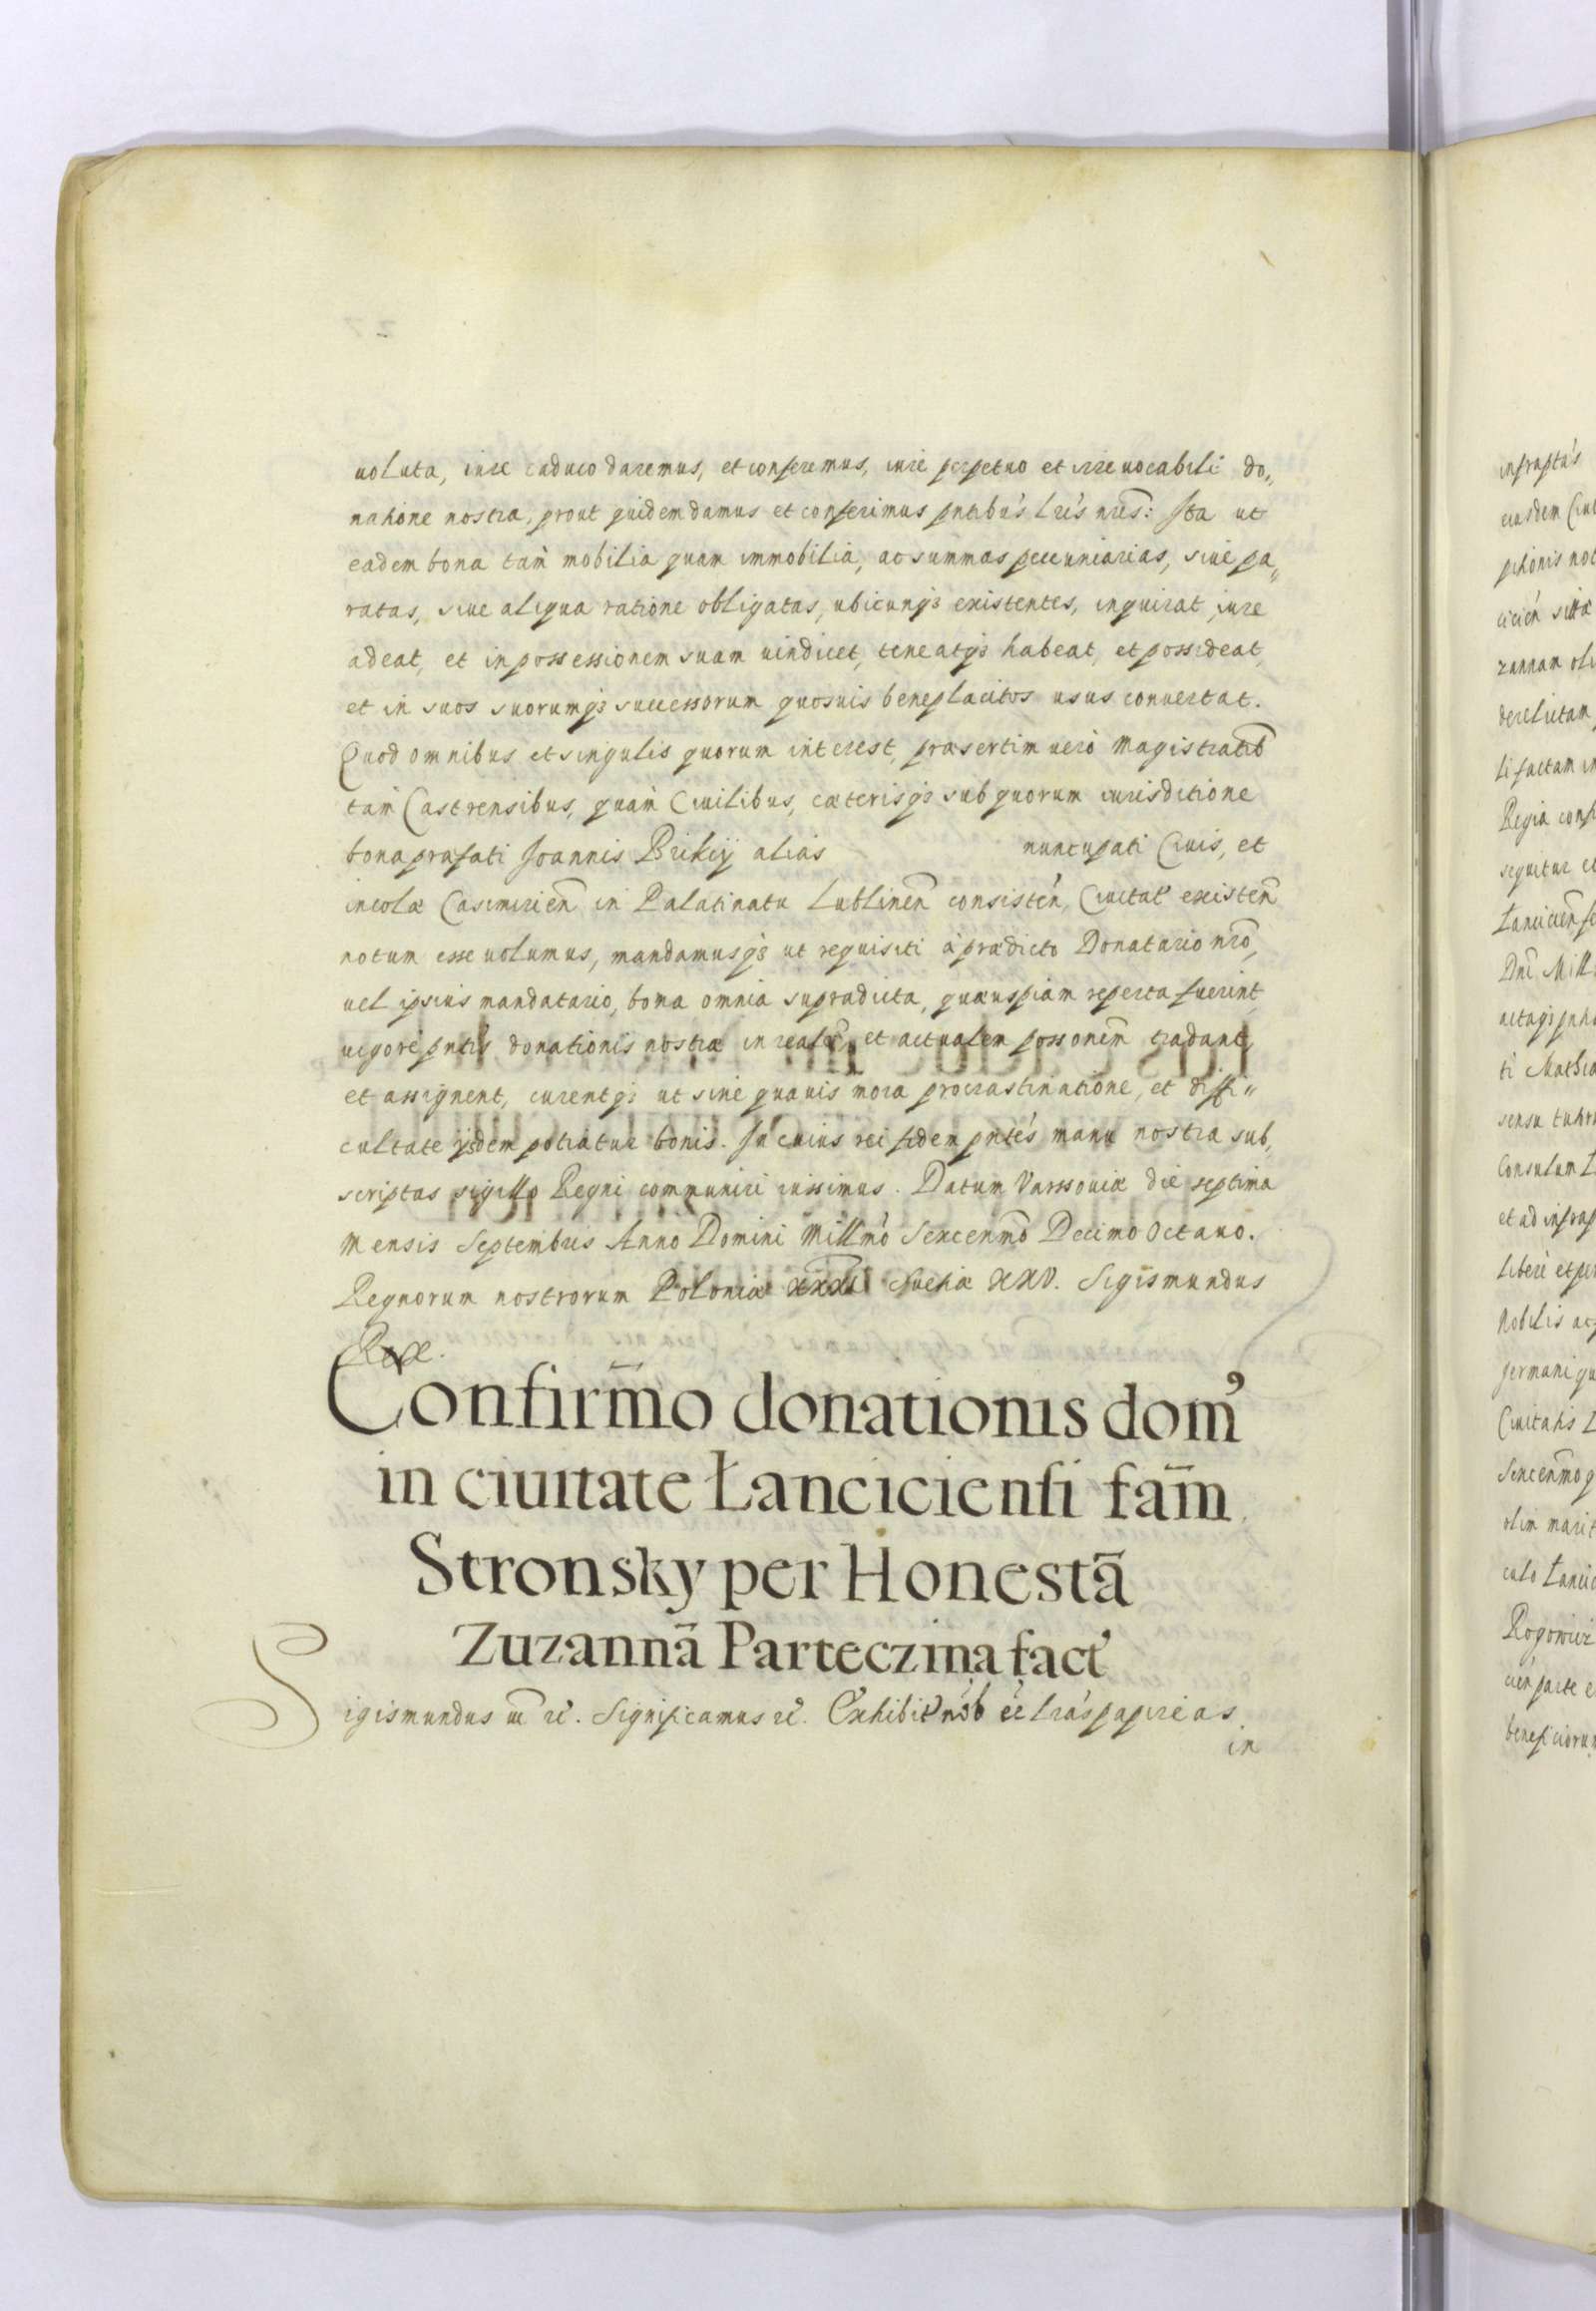 uoluta, iure caduco daremus, et conferemus, iure perpetuo et irreuocabili do„
natione nostra, prout quidem damus et conferimus pntibus lris nris: Ita ut
eadem bona tam mobilia quam immobilia, ac summas pecuniarias, siue pa„
ratas, siue aliqua ratione obligatas, ubicunq3 existentes, inquirat, iure
adeat, et in possessionem suam uindicet, teneatq3 habeat, et possideat,
et in suos suorumq3 successorum quosuis beneplacitos usus conuertat.
Quod omnibus et singulis quorum interest, præsertim uero Magistratib
tam Castrensibus, quam Ciuilibus, cæterisq3 sub quorum iurisditione
bona præfati Joannis Brikij alias nuncupati Ciuis, et
incolæ Casimirien in Palatinatu Lublinen consisten, Ciuitat existen
notum esse uolumus, mandamusq3 ut requisiti à prædicto Donatario nro,
uel ipsius mandatario, bona omnia supradicta, quæuspiam reperta fuerint,
uigore pntis donationis nostræ in realem et actualem possonem tradant,
et assignent, curentq3 ut sine quauis mora procrastinatione, et diffi„
cultate ijsdem potiatur bonis. In cuius rei fidem pntes manu nostra sub,
scriptas sigillo Regni communiri iussimus. Datum Varssouiæ die septima
Mensis Septembris Anno Domini Millmo Sexcenmo Decimo Octauo.
Regnorum nostrorum Poloniæ XXXI Sueciæ XXV. Sigismundus
Rex.
Confirmo donationis dom9
in ciuitate Łanciciensi fam
Stronsky per Honestā
Zuzannā Parteczina fact
Sigismundus III rc. Significamus rc. Exhibit nob ee lras papireas
in
infraptus
eiusdem Ciui
ptionis not
cicien sitæ
zannam oli
derelictam
li factam in
Regia conf
sequitur et
Łancicien fe
Dni Mill
actaq3 pnho
ti Mathia
sensu tuhn
Consulum Ł
et ad infrap
Libere et per
Nobilis ac
germani qu
Ciuitatis Ł
Sexcenmo q
olim marit
culo Łancic
Rogowicz
cien parte e
beneficiorum